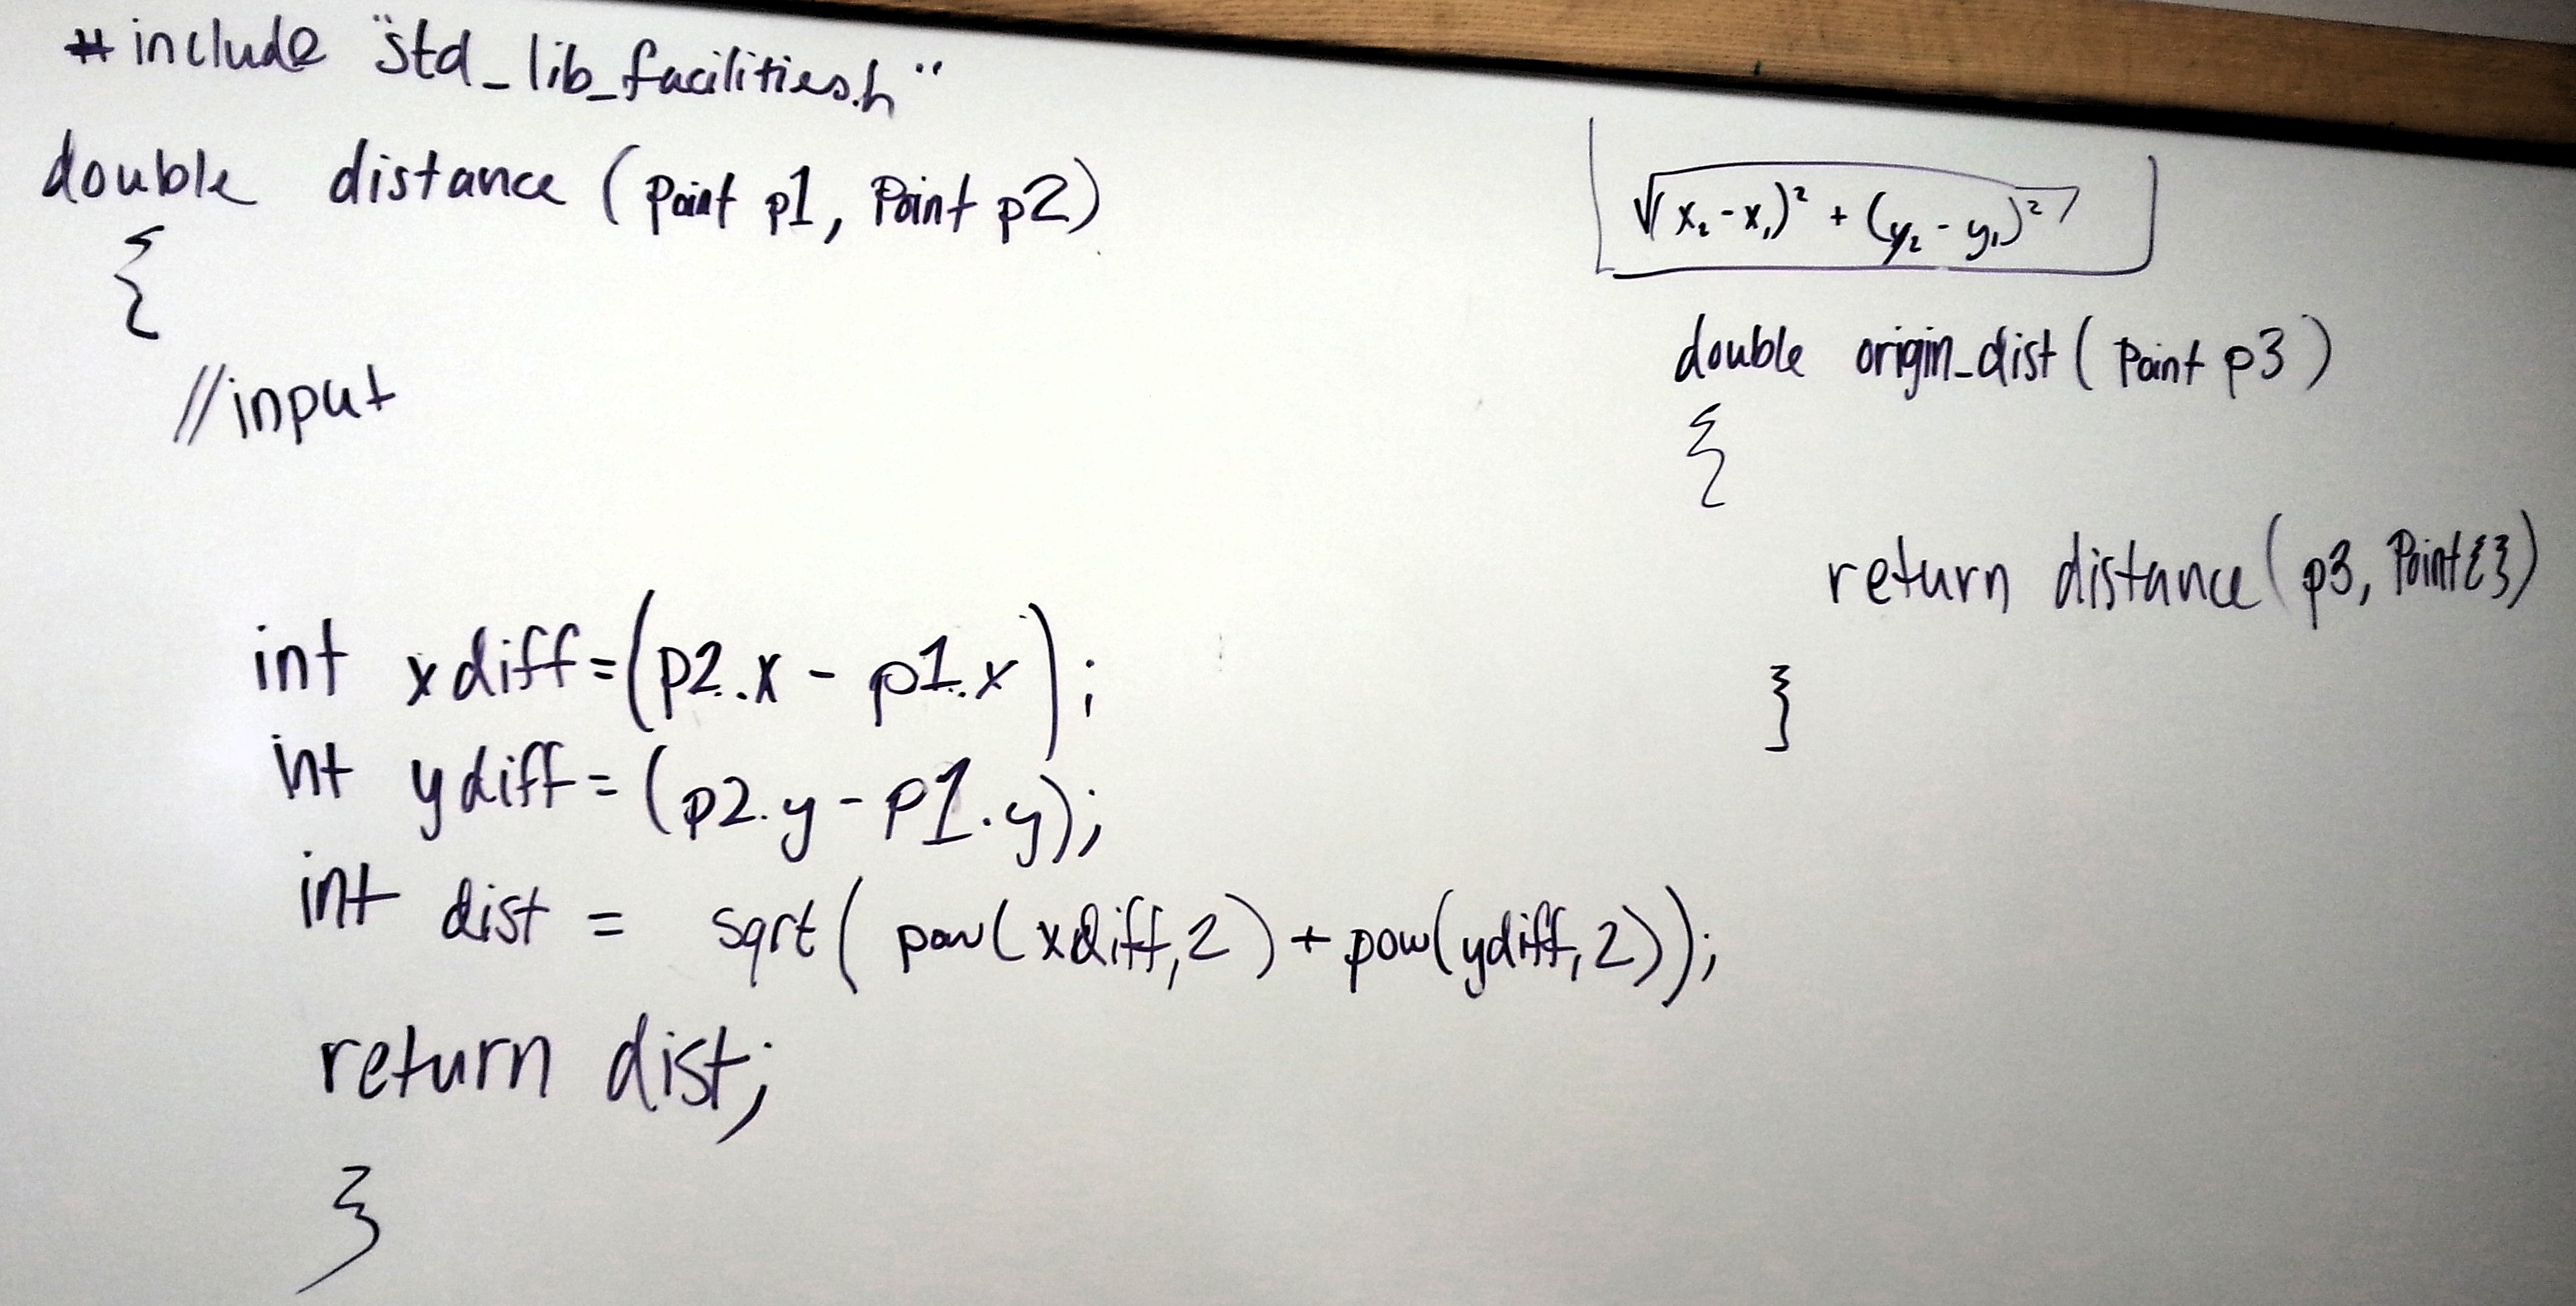 #include "std_lib_facilities.h"
double distance (Point p1, Point p2)
{
//input
int xdiff=(p2.x - p1.x);
int ydiff=(p2.y - p1.y);
int dist = sqrt( pow(xdiff,2)+pow(ydiff,2));
return dist;
}
√x₂-x₁)² + (y₂-y₁)²
double origin_dist( Point p3 )
{
return distance( p3, Point{})
}